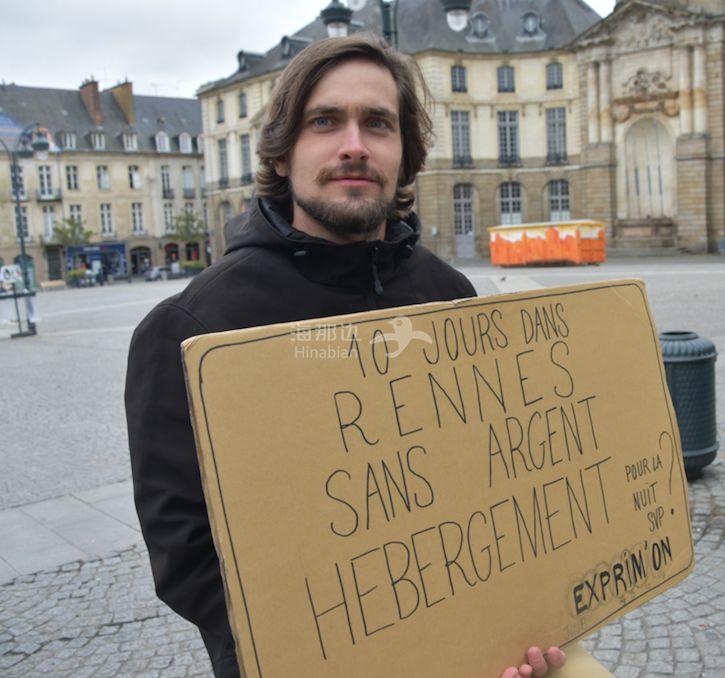 海那边
Hinabian
10 JOURS DANS
RENNES
SANS ARGENT
HEBERGEMENT
POUR LA
NUIT
SVP
?
EXPRIM'ON